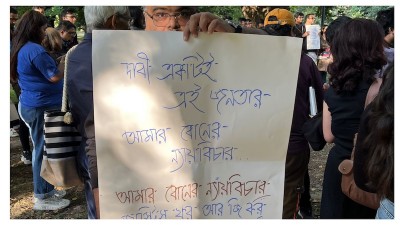 দাবী একটাই
এই জনতার
আমার বোনের
ন্যায়বিচার...
আমার বোনের ন্যায়বিচার
আর জি কর